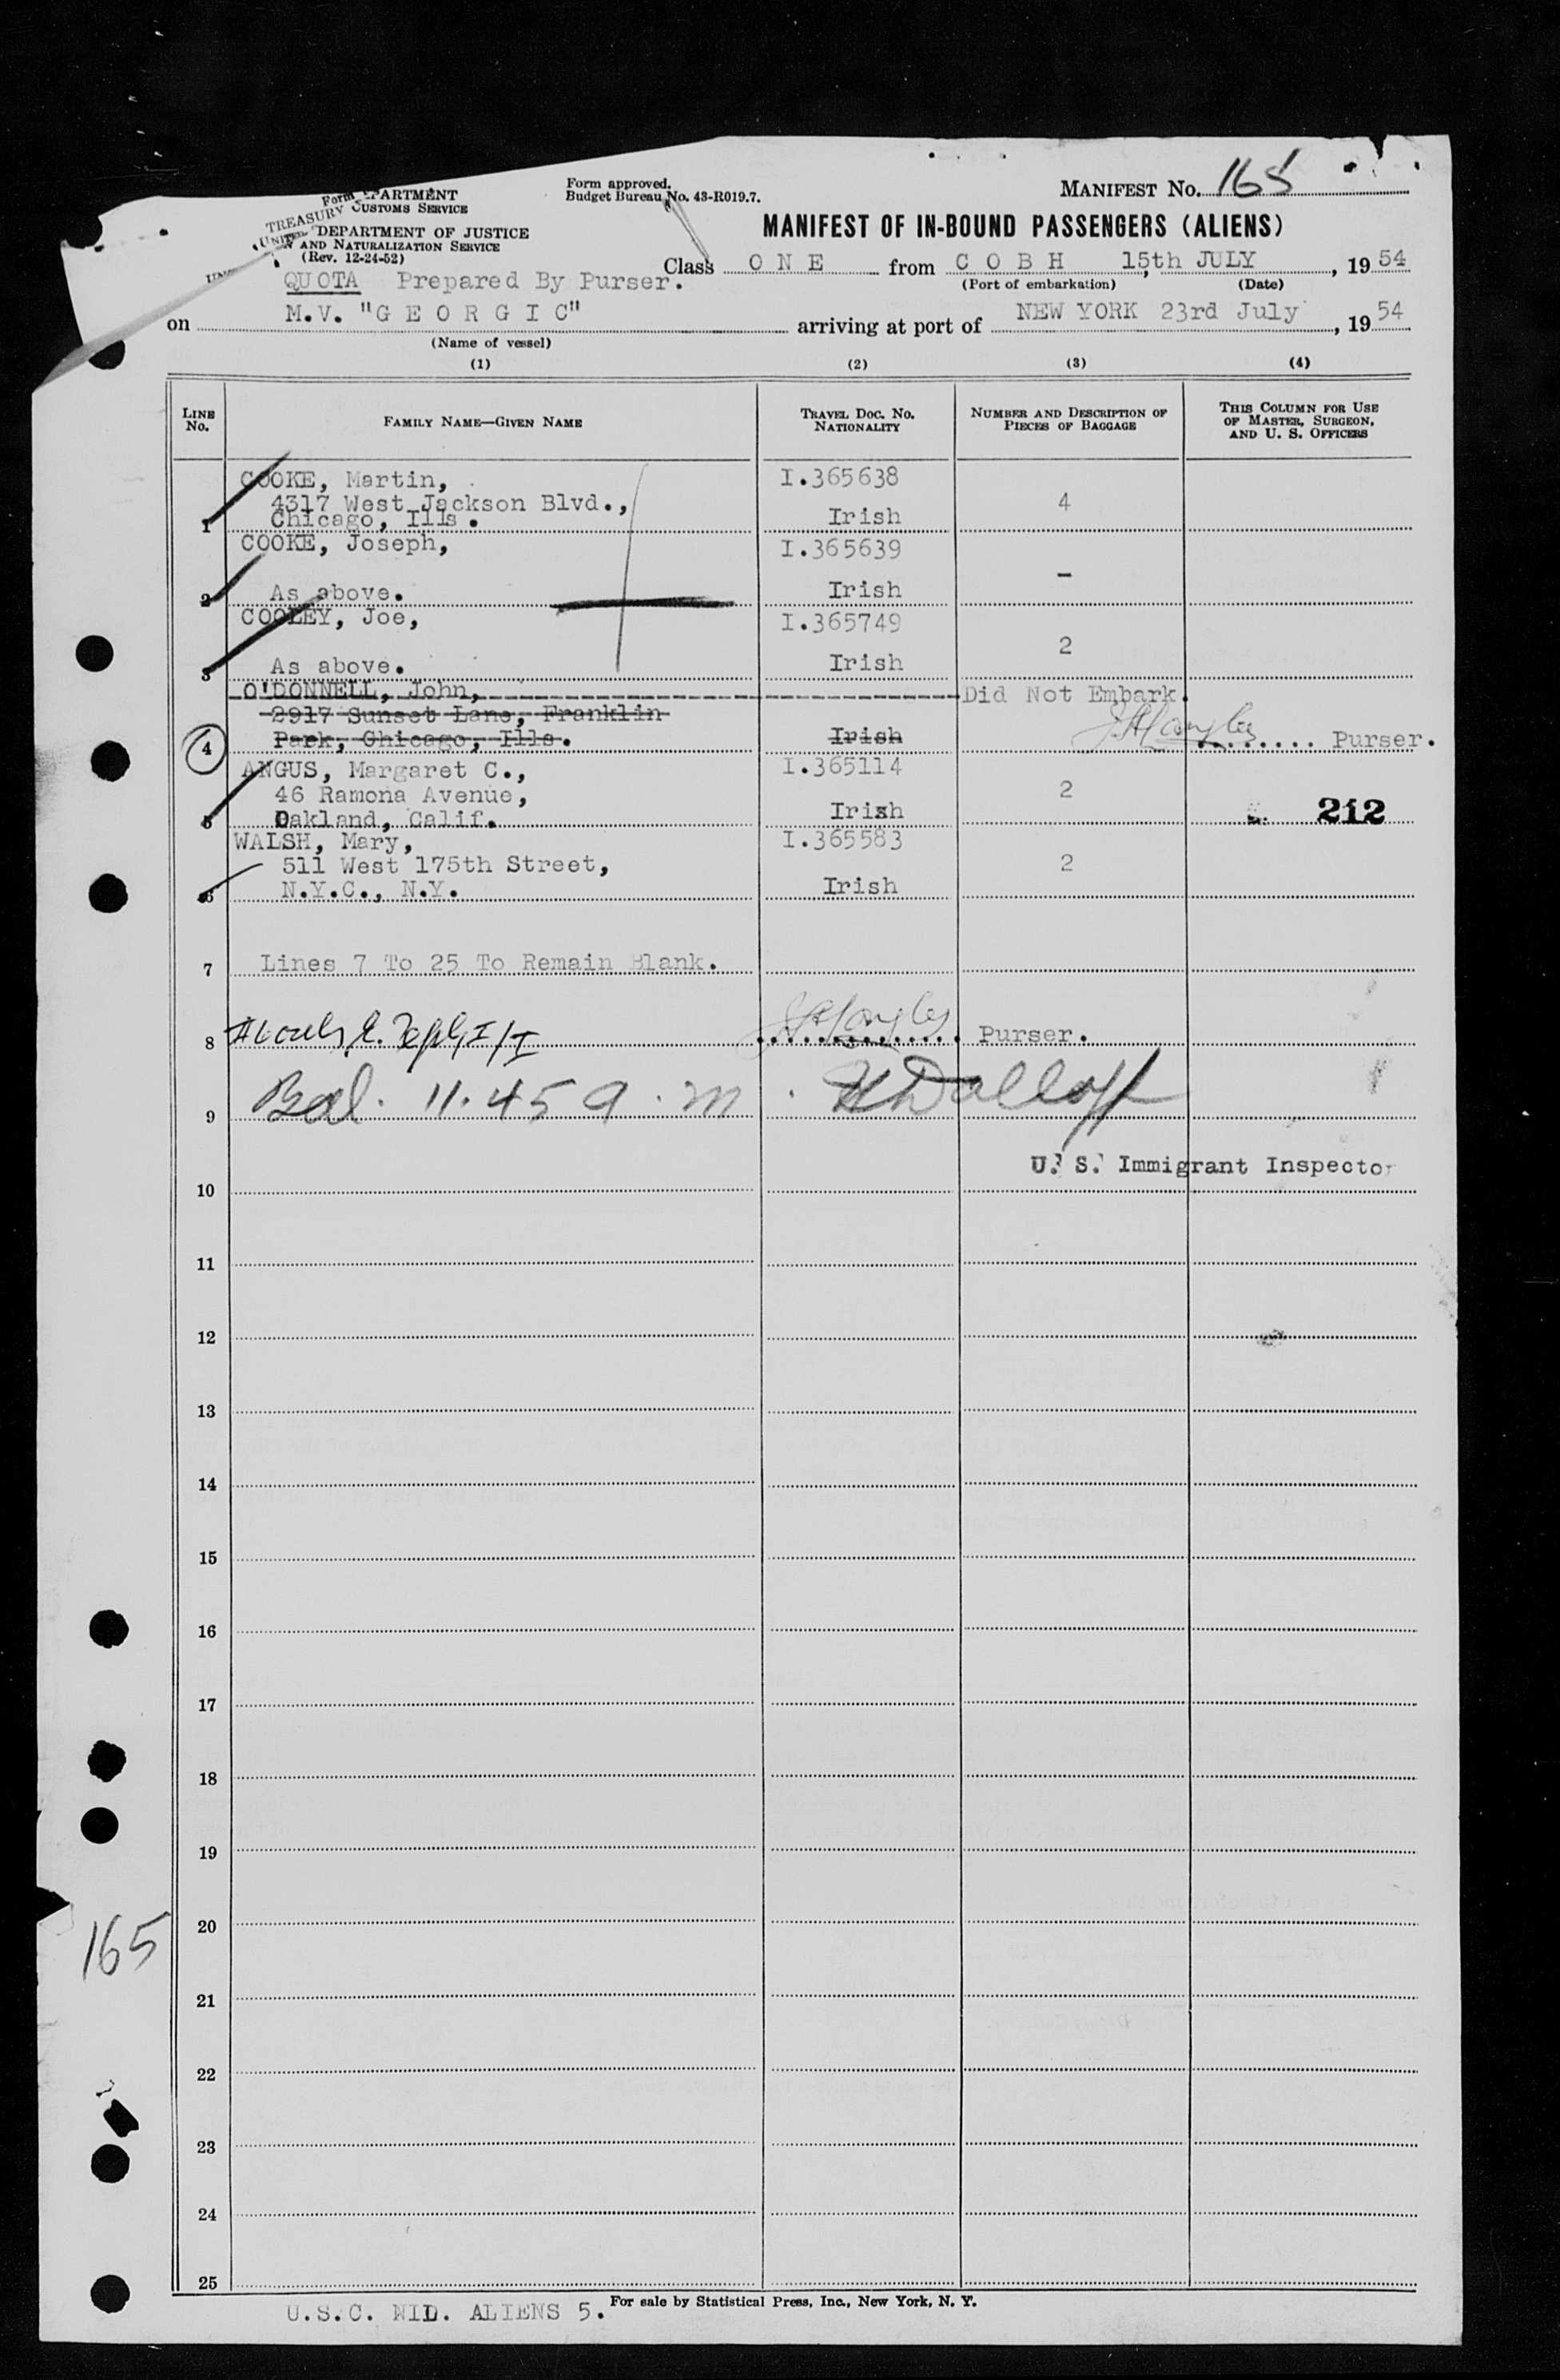 Form
TREASURY DEPARTMENT
UNITED CUSTOMS SERVICE
DEPARTMENT OF JUSTICE
AND NATURALIZATION SERVICE
(Rev. 12-24-52)
Form approved.
Budget Bureau No. 43-R019.7.
MANIFEST No. 165
MANIFEST OF IN-BOUND PASSENGERS (ALIENS)
QUOTA Prepared By Purser.
Class O N E from C O B H 15th JULY, 19 54
(Port of embarkation) (Date)
on M.V. "G E O R G I C" arriving at port of NEW YORK 23rd July, 19 54
(Name of vessel)
(1) (2) (3) (4)
LINE No. FAMILY NAME—GIVEN NAME TRAVEL DOC. NO. NATIONALITY NUMBER AND DESCRIPTION OF PIECES OF BAGGAGE THIS COLUMN FOR USE OF MASTER, SURGEON, AND U. S. OFFICERS
COOKE, Martin, I.365638
4317 West Jackson Blvd., 4
1 Chicago, Ills. Irish
COOKE, Joseph, I.365639
-
2 As above. Irish
COOLEY, Joe, I.365749
2
3 As above. Irish
O'DONNELL, John, Did Not Embark.
2917 Sunset Lane, Franklin
4 Park, Chicago, Ills. Irish Purser.
ANGUS, Margaret C., I.365114
46 Ramona Avenue, 2
5 Oakland, Calif. Irish 212
WALSH, Mary, I.365583
511 West 175th Street, 2
6 N.Y.C., N.Y. Irish
7 Lines 7 To 25 To Remain Blank.
8 Purser.
9 Bal. 11.45 a.m.
U. S. Immigrant Inspector
10
11
12
13
14
15
16
17
18
19
20
165
21
22
23
24
25
U.S.C. NIL. ALIENS 5.
For sale by Statistical Press, Inc., New York, N. Y.